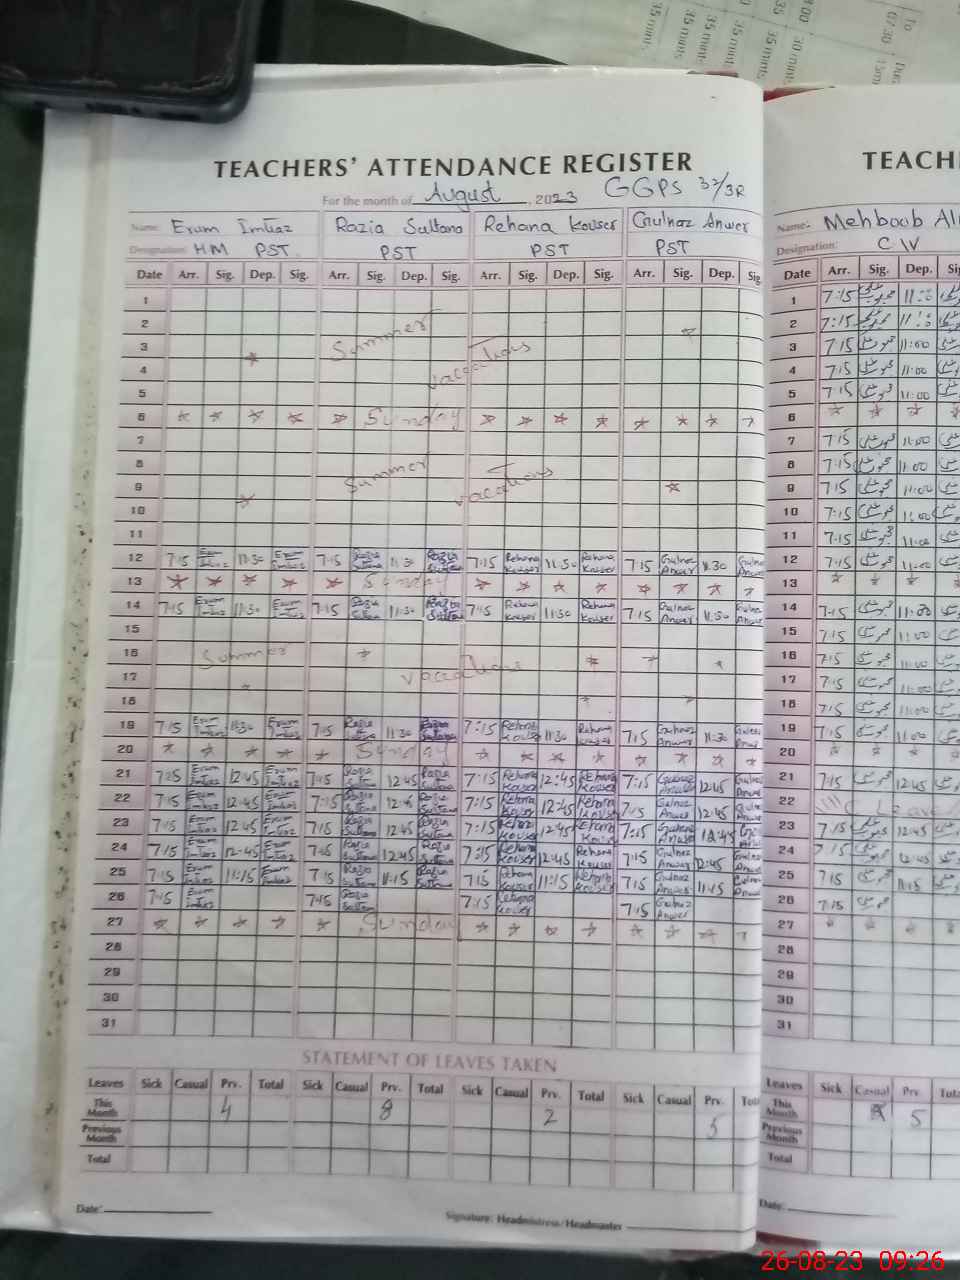 To
07:30
35 mints
35 mints
35 mints
35 mints
30 mints
TEACHERS' ATTENDANCE REGISTER
For the month of August, 2023 GGPS 37/3R
Name: Erum Imtiaz Razia Sultana Rehana Kouser Gulnaz Anwer
Designation: HM PST PST PST PST
Date Arr. Sig. Dep. Sig. Arr. Sig. Dep. Sig. Arr. Sig. Dep. Sig. Arr. Sig. Dep. Sig.
1
2
3 Summer vacations
4
5
6 Sunday
7
8
9 Summer vacations
10
11
12 7:15 Erum Imtiaz 11:30 Erum Imtiaz 7:15 Razia Sultana 11:30 Razia Sultana 7:15 Rehana Kouser 11:30 Rehana Kouser 7:15 Gulnaz Anwer 11:30 Gulnaz Anwer
13 Sunday
14 7:15 Erum Imtiaz 11:30 Erum Imtiaz 7:15 Razia Sultana 11:30 Razia Sultana 7:15 Rehana Kouser 11:30 Rehana Kouser 7:15 Gulnaz Anwer 11:30 Gulnaz Anwer
15
16 Summer vacations
17
18
19 7:15 Erum Imtiaz 11:30 Erum Imtiaz 7:15 Razia Sultana 11:30 Razia Sultana 7:15 Rehana Kouser 11:30 Rehana Kouser 7:15 Gulnaz Anwer 11:30 Gulnaz Anwer
20 Sunday
21 Erum Imtiaz 12:45 Erum Imtiaz 7:15 Razia Sultana 12:45 Razia Sultana 7:15 Rehana Kouser 12:45 Rehana Kouser 7:15 Gulnaz Anwer 12:45 Gulnaz Anwer
22 7:15 Erum Imtiaz 12:45 Erum Imtiaz 7:15 Razia Sultana 12:45 Razia Sultana 7:15 Rehana Kouser 12:45 Rehana Kouser 7:15 Gulnaz Anwer 12:45 Gulnaz Anwer
23 7:15 Erum Imtiaz 12:45 Erum Imtiaz 7:15 Razia Sultana 12:45 Razia Sultana 7:15 Rehana Kouser 12:45 Rehana Kouser 7:15 Gulnaz Anwer 12:45
24 7:15 Erum Imtiaz 12:45 Erum Imtiaz 7:15 Razia Sultana 12:45 Razia Sultana 7:15 Rehana Kouser 12:45 Rehana Kouser 7:15 Gulnaz Anwer 12:45 Gulnaz Anwer
25 7:15 Erum Imtiaz 11:15 Erum Imtiaz 7:15 Razia Sultana 11:15 Razia Sultana 7:15 Rehana Kouser 11:15 Rehana Kouser 7:15 Gulnaz Anwer 11:15 Gulnaz Anwer
26 7:15 Erum Imtiaz 7:15 Razia Sultana 7:15 Rehana Kouser 7:15 Gulnaz Anwer
27 Sunday
28
29
30
31
STATEMENT OF LEAVES TAKEN
Leaves Sick Casual Prv. Total Sick Casual Prv. Total Sick Casual Prv. Total Sick Casual Prv.
This Month 4 8 2 5
Previous Month
Total
Date:
Signature: Headmistress/Headmaster
TEACH
Name: Mehboob Ali
Designation: C IV
Date Arr. Sig. Dep.
1 7:15
2 7:15
3 7:15 11:00
4 7:15 11:00
5 7:15 11:00
6
7 7:15 11:00
8 7:15 11:00
9 7:15 11:00
10 7:15 11:00
11 7:15 11:00
12 7:15 11:00
13
14 7:15
15 7:15 11:00
16 7:15 11:00
17 7:15 11:00
18 7:15 11:00
19 7:15 11:00
20
21 7:15 12:45
22
23 7:15 12:45
24 7:15 12:45
25 7:15 11:15
26 7:15
27
28
29
30
31
Leaves Sick Casual Prv.
This Month 5
Previous Month
Total
Date:
26-08-23 09:26